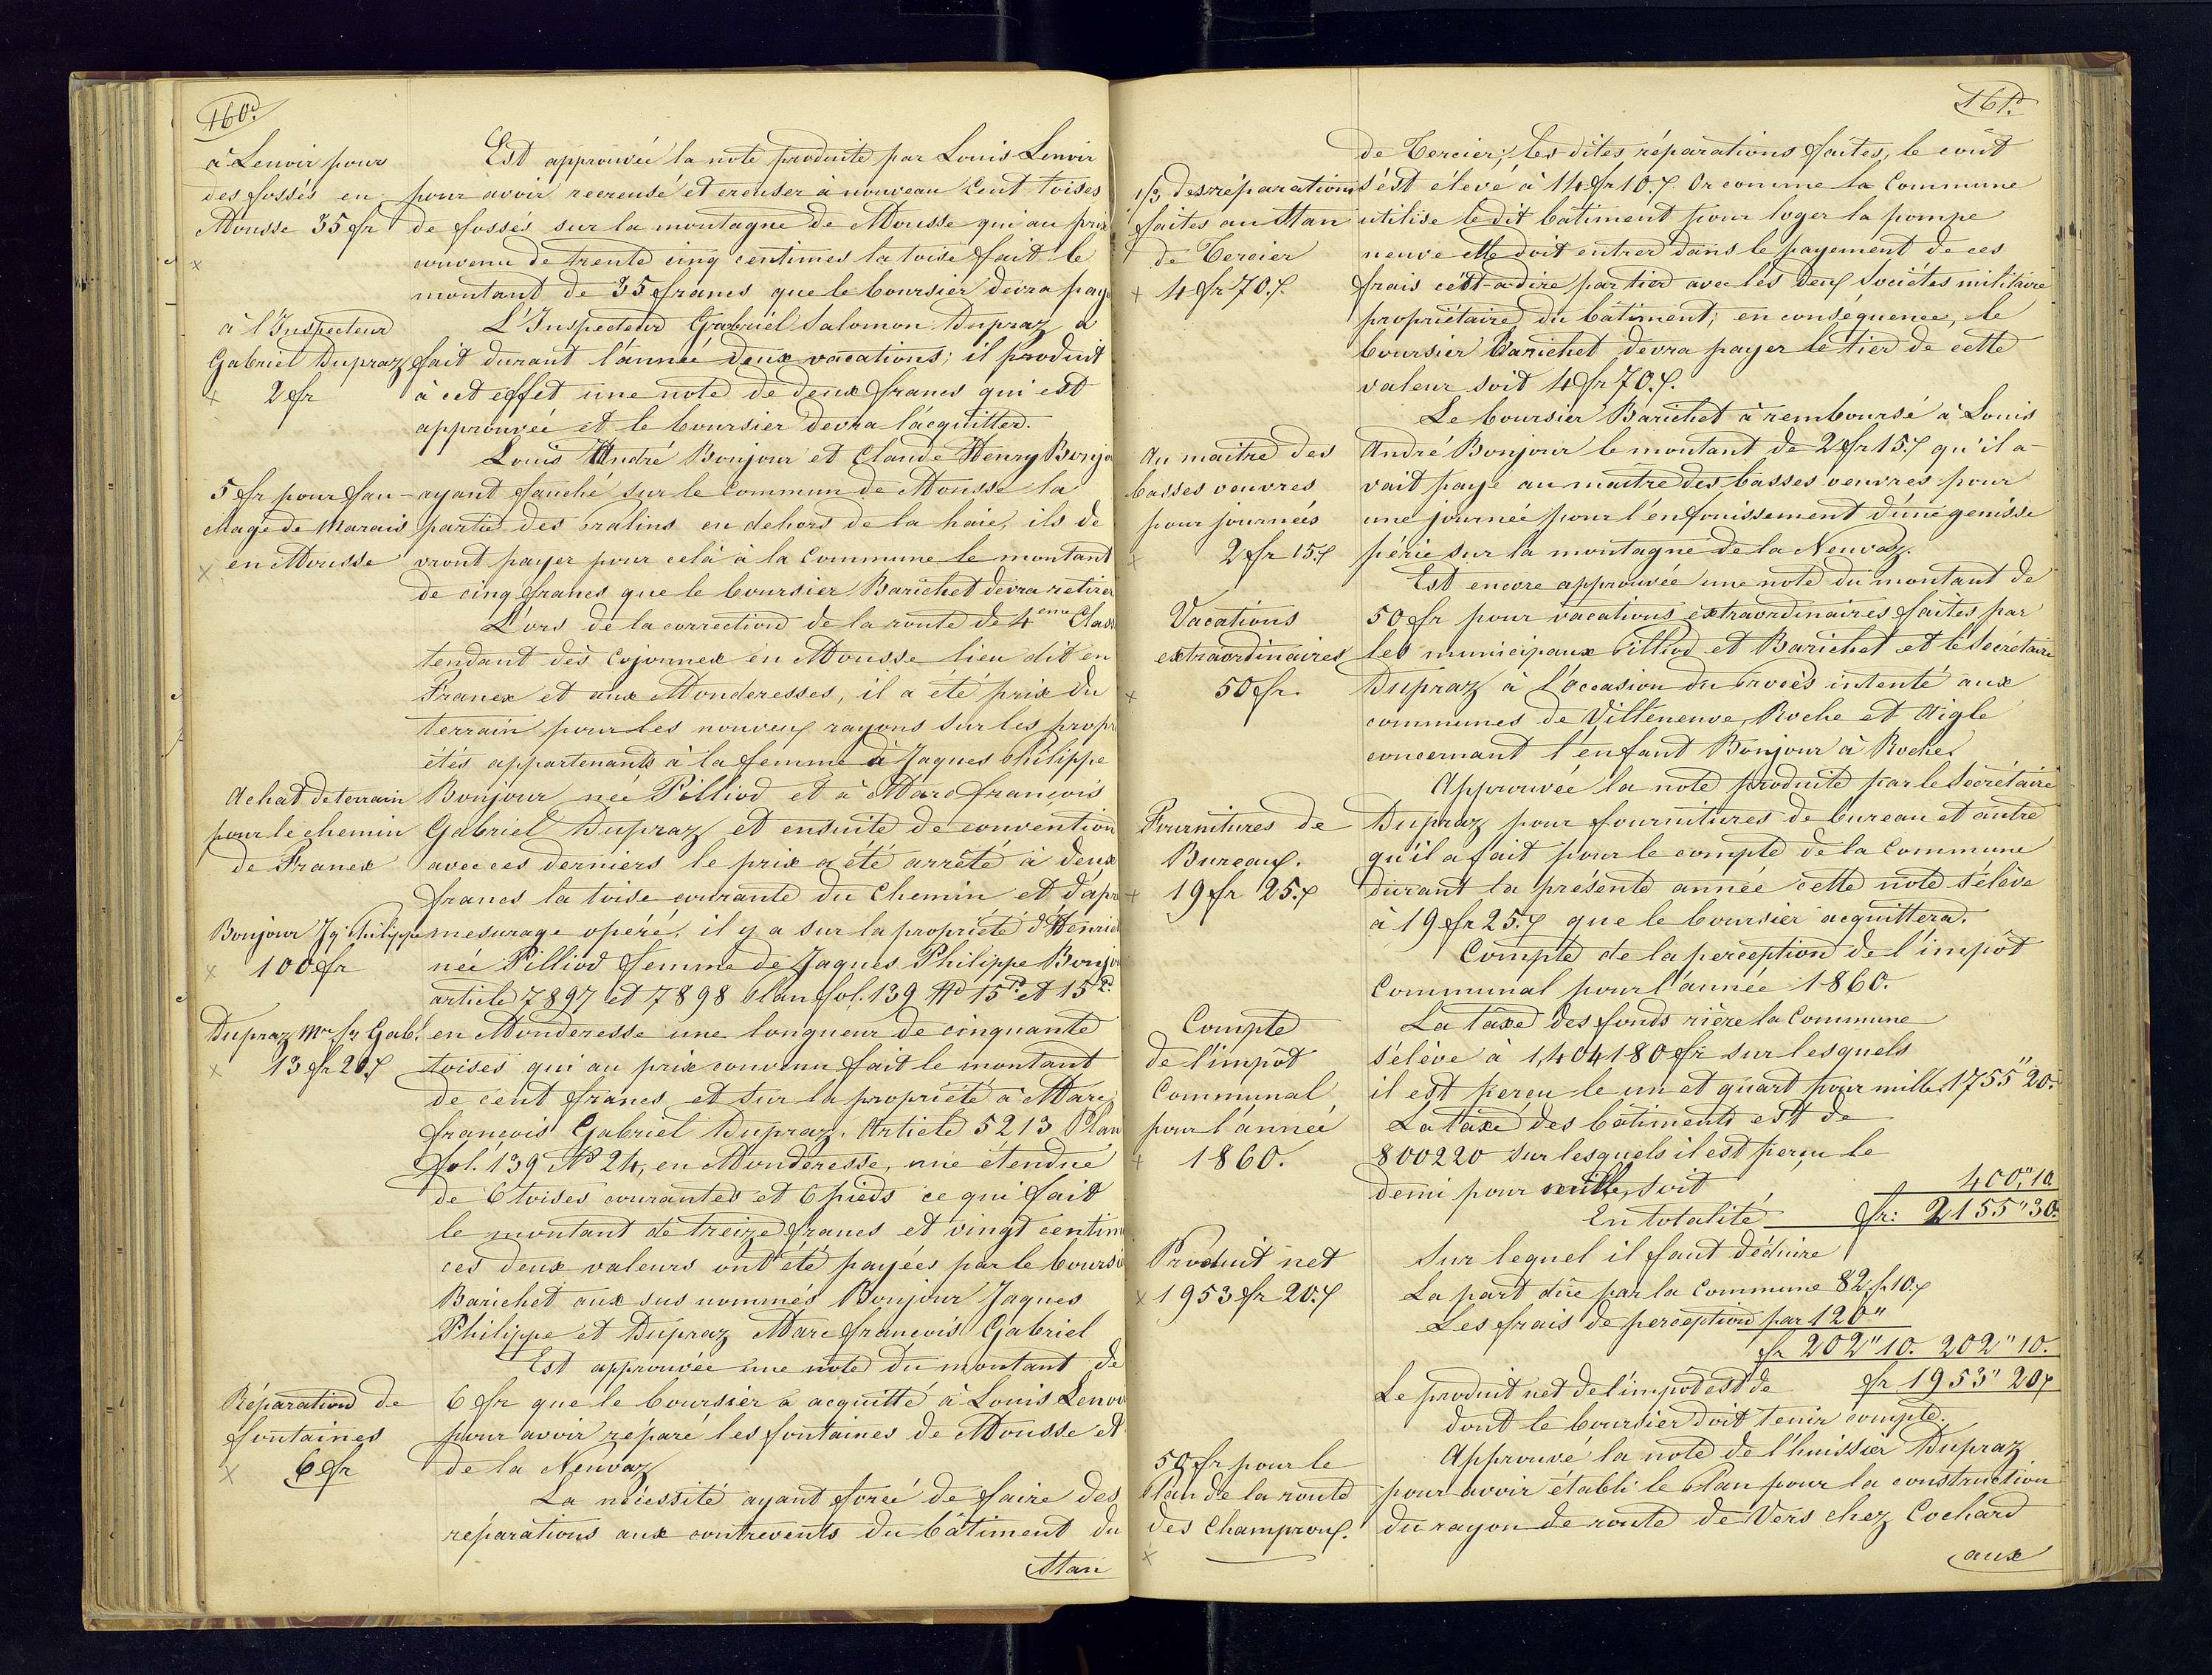 160.
à Lenoir pour
des fossés en
Mousse 35 fr
Est approuvée la note produite par Louis Lenoir
pour avoir recreusé et creuser à nouveau Cent toises
de fossés sur la montagne de Mousse qui au prix
convenu de trente cinq centimes la toise fait le
montant de 35 francs que le boursier devra paye
à l'Inspecteur
Gabriel Dupraz
2 fr
L'Inspecteur Gabriel Salomon Dupraz a
fait durant l'année deux vacations; il produit
à cet effet une note de deux francs qui est
approuvée et le boursier devra l'acquitter.
5 fr pour fau-
chage de Marais
en Mousse
Louis André Bonjour et Claude Henry Bonjo
ayant fauché sur le Commun de Mousse la
partie des Pralins en dehors de la haie, ils de
vront payer pour celà à la Commune le montant
de cinq francs que le boursier Barichet devra retirer
Lors de la correction de la route de 4eme Clas
tendant dès Cojonnex en Mousse lieu dit en
Franex et aux Monderesses, il a été prix du
terrain pour les nouveux rayons sur les propri
étés appartenants à la femme à Jaques Philippe
Achat de terrain
pour le chemin
de Franex
Bonjour née Pilliod et à Marc françois
Gabriel Dupraz et ensuite de convention
avec ces derniers le prix a été arrêté à deux
francs la toise courante du Chemin et d'apr
Bonjour Jq Philippe
100 fr
mesurage opéré, il y a sur la propriété d'Henrie
née Pilliod femme de Jaques Philippe Bonjo
article 7897 et 7898 Plan fol. 139 No 15 1o et 15 2o
Dupraz Mc fs Gab.l
13 fr 20
en Monderesse une longueur de cinquante
toises qui au prix convenu fait le montant
de cent francs et sur la propriété à Marc
françois Gabriel Dupraz. Article 5213 Plan
fol. 139 No 24, en Monderesse, une étendue
de 6 toises courantes et 6 pieds ce qui fait
le montant de treize francs et vingt centim
ces deux valeurs ont été payées par le boursi
Barichet aux sus nommés Bonjour Jaques
Philippe et Dupraz Marc françois Gabriel
Réparation de
fontaines
6 fr
Est approuvée une note du montant de
6 fr que le boursier a acquitté à Louis Lenoi
pour avoir réparé les fontaines de Mousse et
de la Neuvaz
La nécessité ayant forcé de faire des
réparations aux contrevents du bâtiment du
Man
161.
1/3 des réparations
faites au Man
de Tercier
4 fr 70.
de Tercier, les dites réparations faites, le coût
s'est élevé à 14 fr 10. Or comme la Commune
utilise le dit bâtiment pour loger la pompe
neuve elle doit entrer dans le payement de ces
frais cést-a-dire par tier avec les deux Sociétés militaire
propriétaire du bâtiment; en conséquence, le
boursier Barichet devra payer le tier de cette
valeur soit 4 fr 70.
Au maitre des
basses oeuvres
pour journées
2 fr 15
Le boursier Barichet à remboursé à Louis
André Bonjour le montant de 2 fr 15 qu'il a-
vait payé au maître des basses oeuvres pour
une journée pour l'enfouissement d'une genisse
périe sur la montagne de la Neuvaz.
Vacations
extraordinaires
50 fr.
Est encore approuvée une note du montant de
50 fr pour vacations extraordinaires faites par
les municipaux Pilliod et Barichet et le Secrétaire
Dupraz à l'occasion du Procès intenté aux
communes de Villeneuve, Roche et Aigle
concernant l'enfant Bonjour à Roche.
Fournitures de
Bureaux.
19 fr 25
Approuvée la note produite par le Secrétaire
Dupraz pour fournitures de bureau et autre
qu'il a fait pour le compte de la Commune
durant la présente année cette note s'élève
à 19 fr 25 que le boursier acquittera.
Compte
de l'impôt
Communal
pour l'année
1860.
Compte de la perception de l'impôt
Communal pour l'année 1860.
La taxe des fonds rière la Commune
s'élève à 1,404180 fr sur lesquels
il est perçu le un et quart pour mille 1755" 20.
La taxe des bâtiments est de
800220 sur lesquels il est perçu le
demi pour mille, soit 400" 10
En totalité fr: 2155" 30.
Produit net
1953 fr 20
Sur lequel il faut déduire
La part dûe par la Commune 82 f 10
Les frais de perception par 120"
fr 202" 10. 202" 10.
Le produit net de l'impôt est de fr 1953" 20
dont le boursier doit tenir compte.
50 fr pour le
Plan de la route
des Champroux.
Approuvé la note de l'huissier Dupraz
pour avoir établi le Plan pour la construction
du rayon de route de Vers chez Cochard
aux